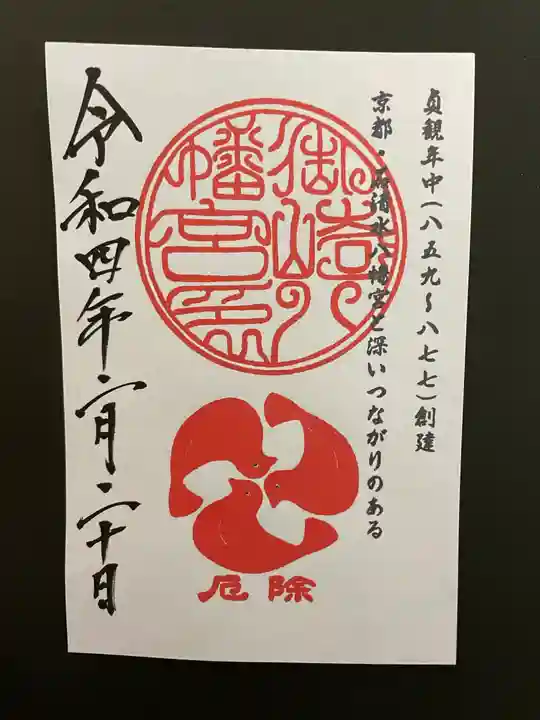 貞観年中(八五九〜八七七)創建
京都・石清水八幡宮と深いつながりのある
御崎八
幡宮印
厄除
令和四年二月二十日